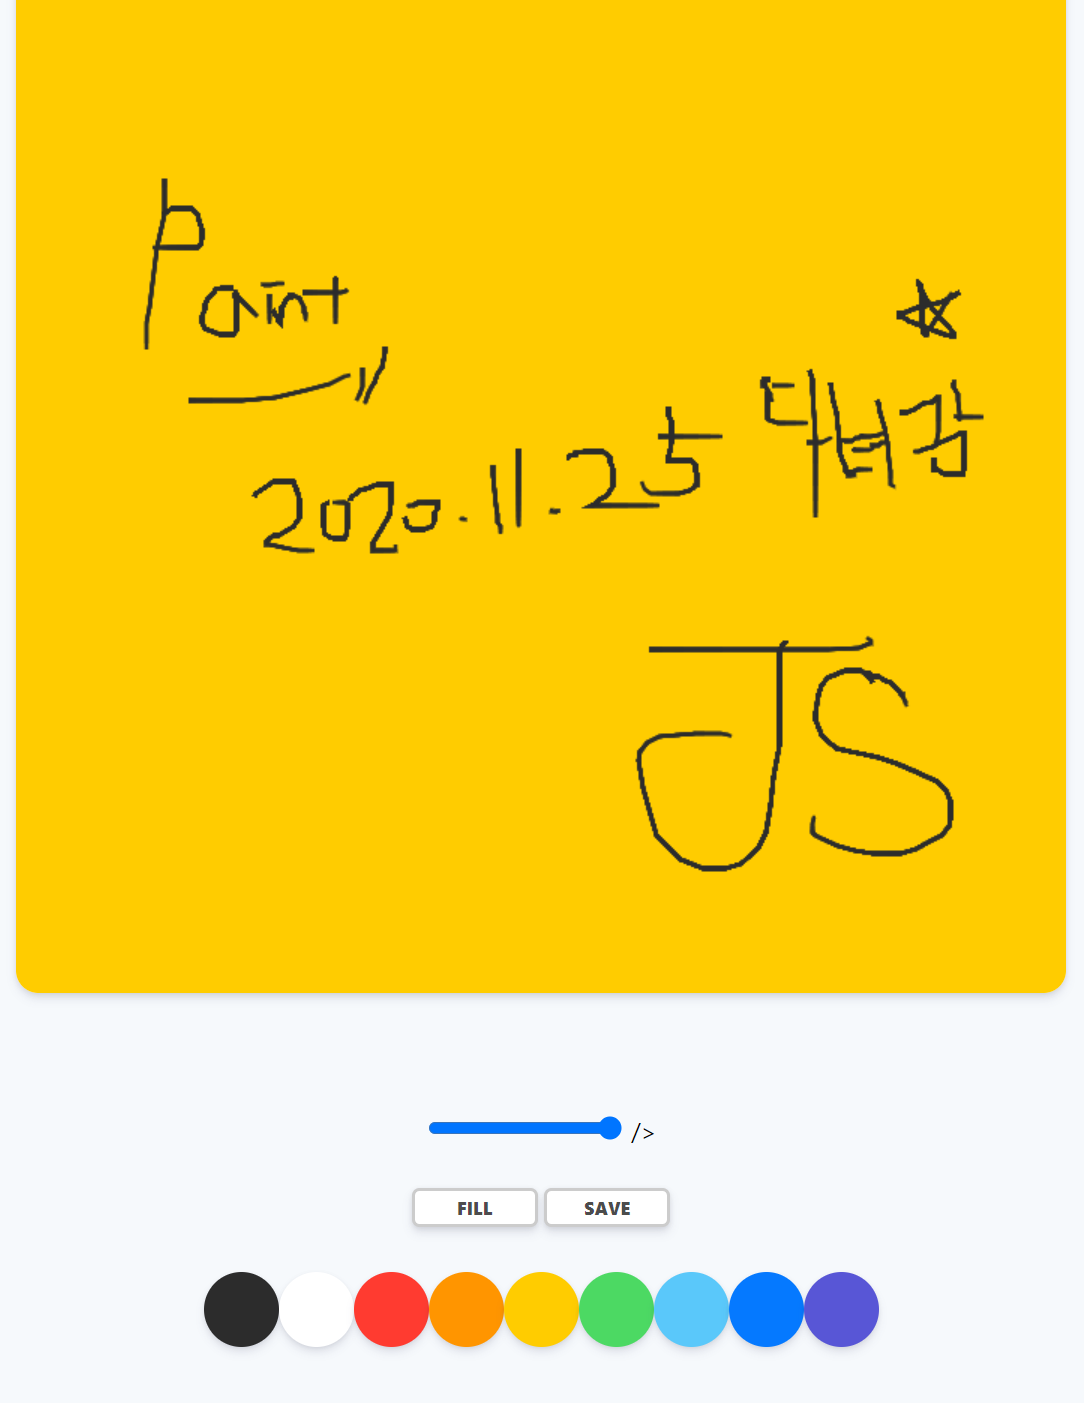 Paint
2020.11.25
JS
/>
FILL SAVE